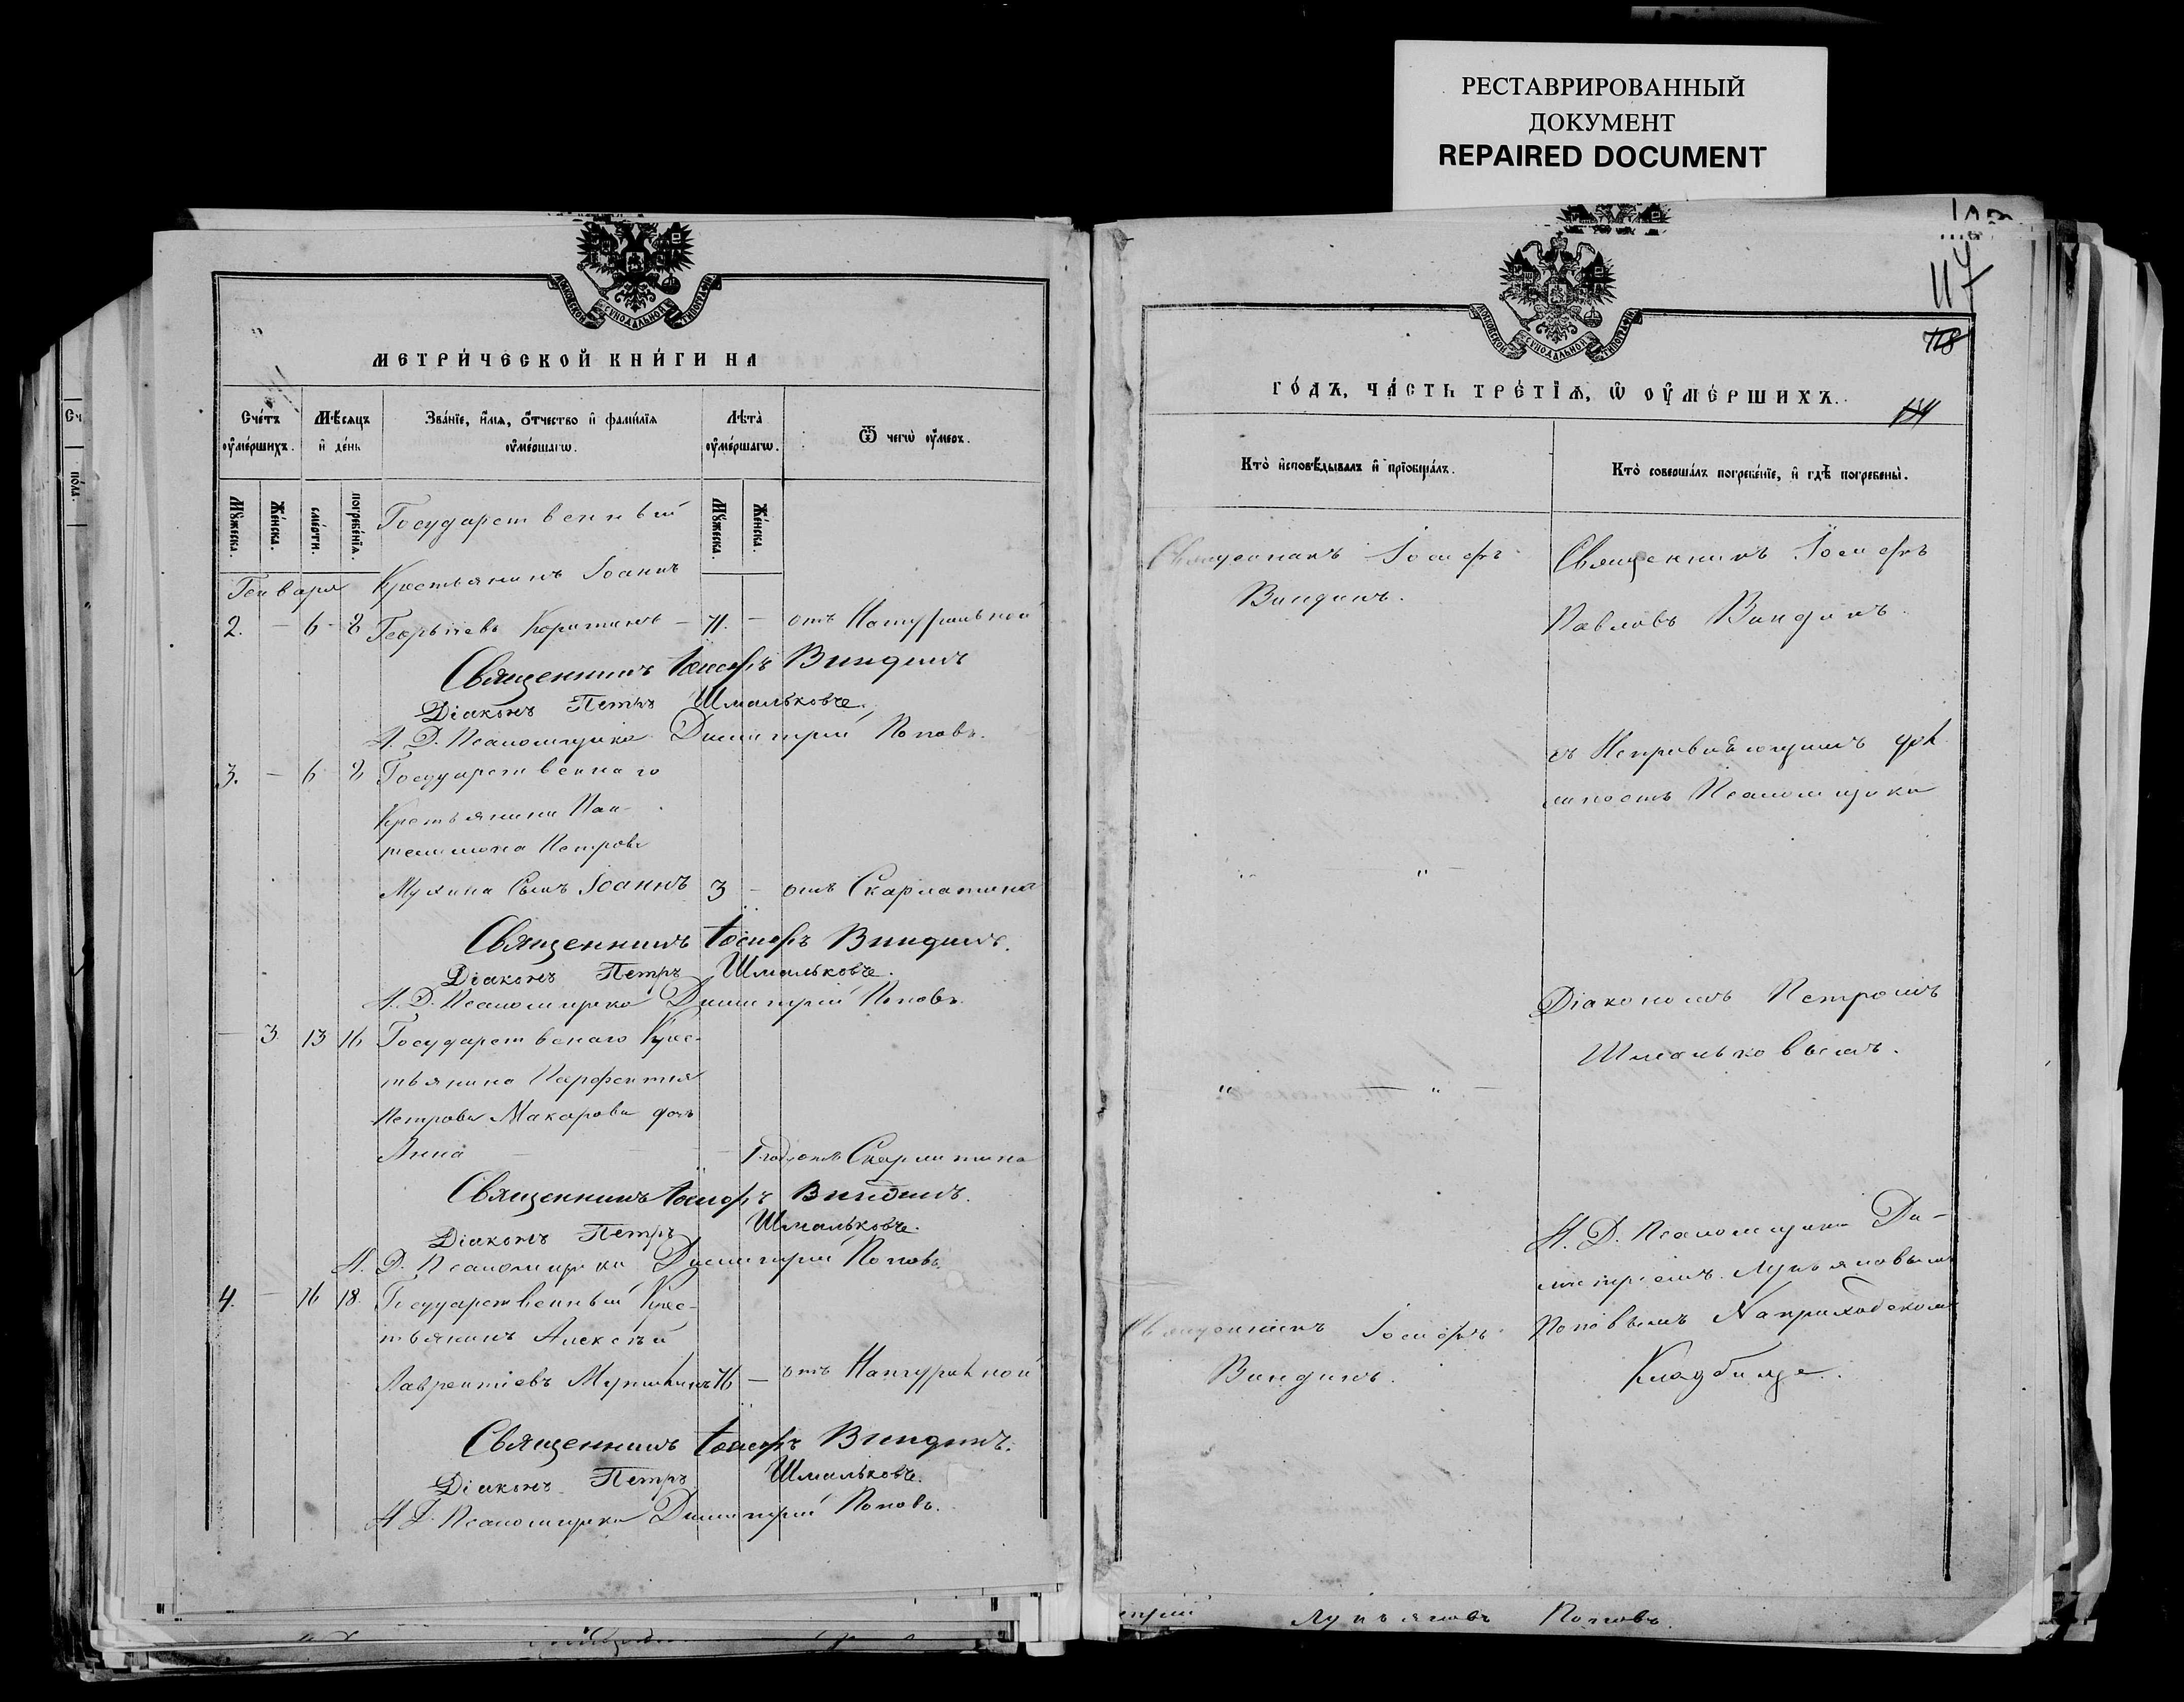 РЕСТАВРИРОВАННЫЙ
ДОКУМЕНТ
REPAIRED DOCUMENT
МОСКОВСКОЙ СУНОДАЛЬНОЙ ТИПОГРАФІИ
МЕТРИ́ЧЕСКОЙ КНИ́ГИ НА
Сче́тъ оу҆ме́ршихъ.
Мѣ́сяцъ и҆ де́нь
Зва́нїе, и҆́мѧ, ѻ҆́тчество и҆ фами́лїѧ оу҆ме́ршагѡ.
Лѣ́та оу҆ме́ршагѡ.
Ѿ чегѡ̀ оу҆́меръ.
Мꙋ́жеска.
Же́нска.
сме́рти.
погребе́нїѧ.
Мꙋ́жеска.
Же́нска.
Государственный
Генваря Крестьянинъ Іоаннъ
2. – 6 8 Георгіевъ – 71. – отъ Натуральной
Священникъ Іосифъ Виндинъ
Діаконъ Петръ Шмальковъ.
И. Д. Псаломщика Димитрій Поповъ.
3. – 6 8 Государственнаго
Крестьянина Пан-
телимона Петрова
Мухина Сынъ Іоаннъ 3 – отъ Скарлатина
Священникъ Іосифъ Виндинъ.
Діаконъ Петръ Шмальковъ.
И. Д. Псаломщика Димитрій Поповъ
– 3 13 16 Государственаго Крес-
тьянина Парфентія
Петрова Макарова дочь
Анна – – – 1 год. отъ Скарлатина
Священникъ Іосифъ Виндинъ.
Діаконъ Петръ Шмальковъ.
И. Д. Псаломщика Димитрій Поповъ.
4. – 16 18. Государственный Крес-
тьянинъ Алексѣй
Лаврентіевъ 76 – отъ Натуральной
Священникъ Іосифъ Виндинъ.
Діаконъ Петръ Шмальковъ.
И. Д. Псаломщика Димитрій Поповъ.
117
118
МОСКОВСКОЙ СУНОДАЛЬНОЙ ТИПОГРАФІИ
ГО́ДЪ, ЧА́СТЬ ТРЕ́ТЇѦ, Ѡ҆ ОУ҆МЕ́РШИХЪ.
Кто̀ и҆сповѣ́дывалъ и҆ прїѡбща́лъ.
Кто̀ соверша́лъ погребе́нїе, и҆ гдѣ̀ погребены̀.
Священникъ Іосифъ
Виндинъ.
Священникъ Іосифъ
Павловъ Виндинъ
съ Исправляющимъ дол
жность Псаломщика
„ –
Діакономъ Петромъ
Шмальковымъ.
„ – „ –
И. Д. Псаломщика Ди-
митріемъ Лукьяновымъ
Поповымъ На приходскомъ
Кладбище.
Священникъ Іосифъ
Виндинъ.
Лукьяновъ Поповъ.